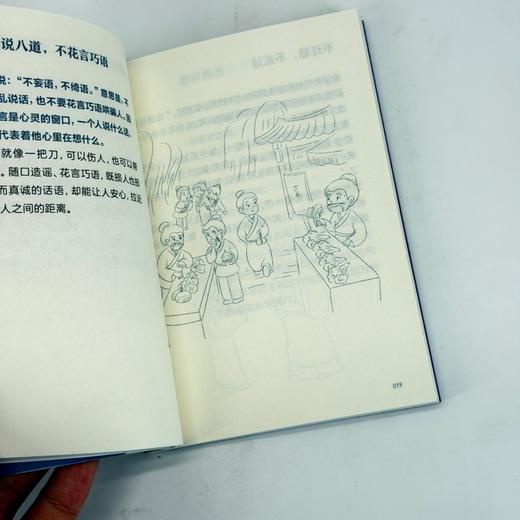 说八道，不花言巧语
说：“不妄语，不绮语。”意思是，不
乱说话，也不要花言巧语哄骗人。语
言是心灵的窗口，一个人说什么话，
代表着他心里在想什么。
就像一把刀，可以伤人，也可以帮
。随口造谣、花言巧语，既损人也损
而真诚的话语，却能让人安心，拉近
人之间的距离。
019